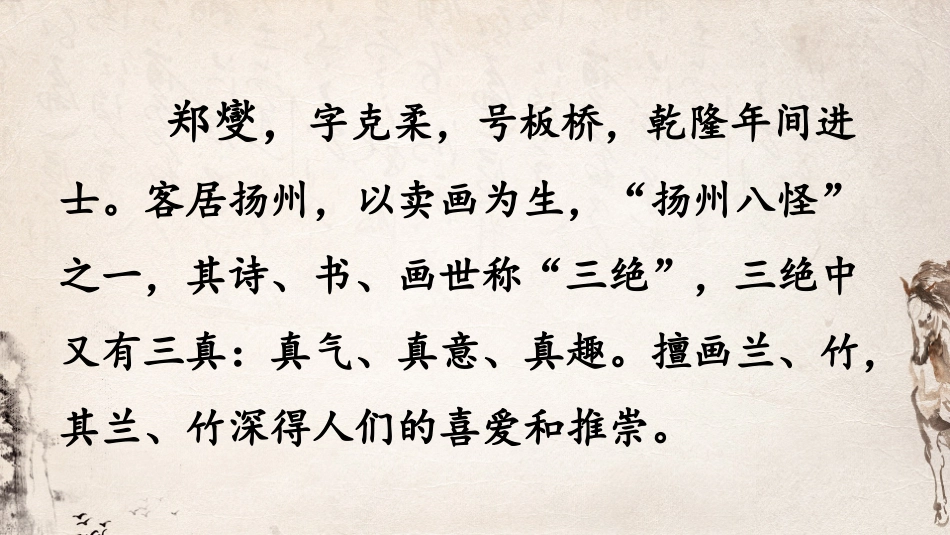 郑燮，字克柔，号板桥，乾隆年间进
士。客居扬州，以卖画为生，“扬州八怪”
之一，其诗、书、画世称“三绝”，三绝中
又有三真：真气、真意、真趣。擅画兰、竹，
其兰、竹深得人们的喜爱和推崇。